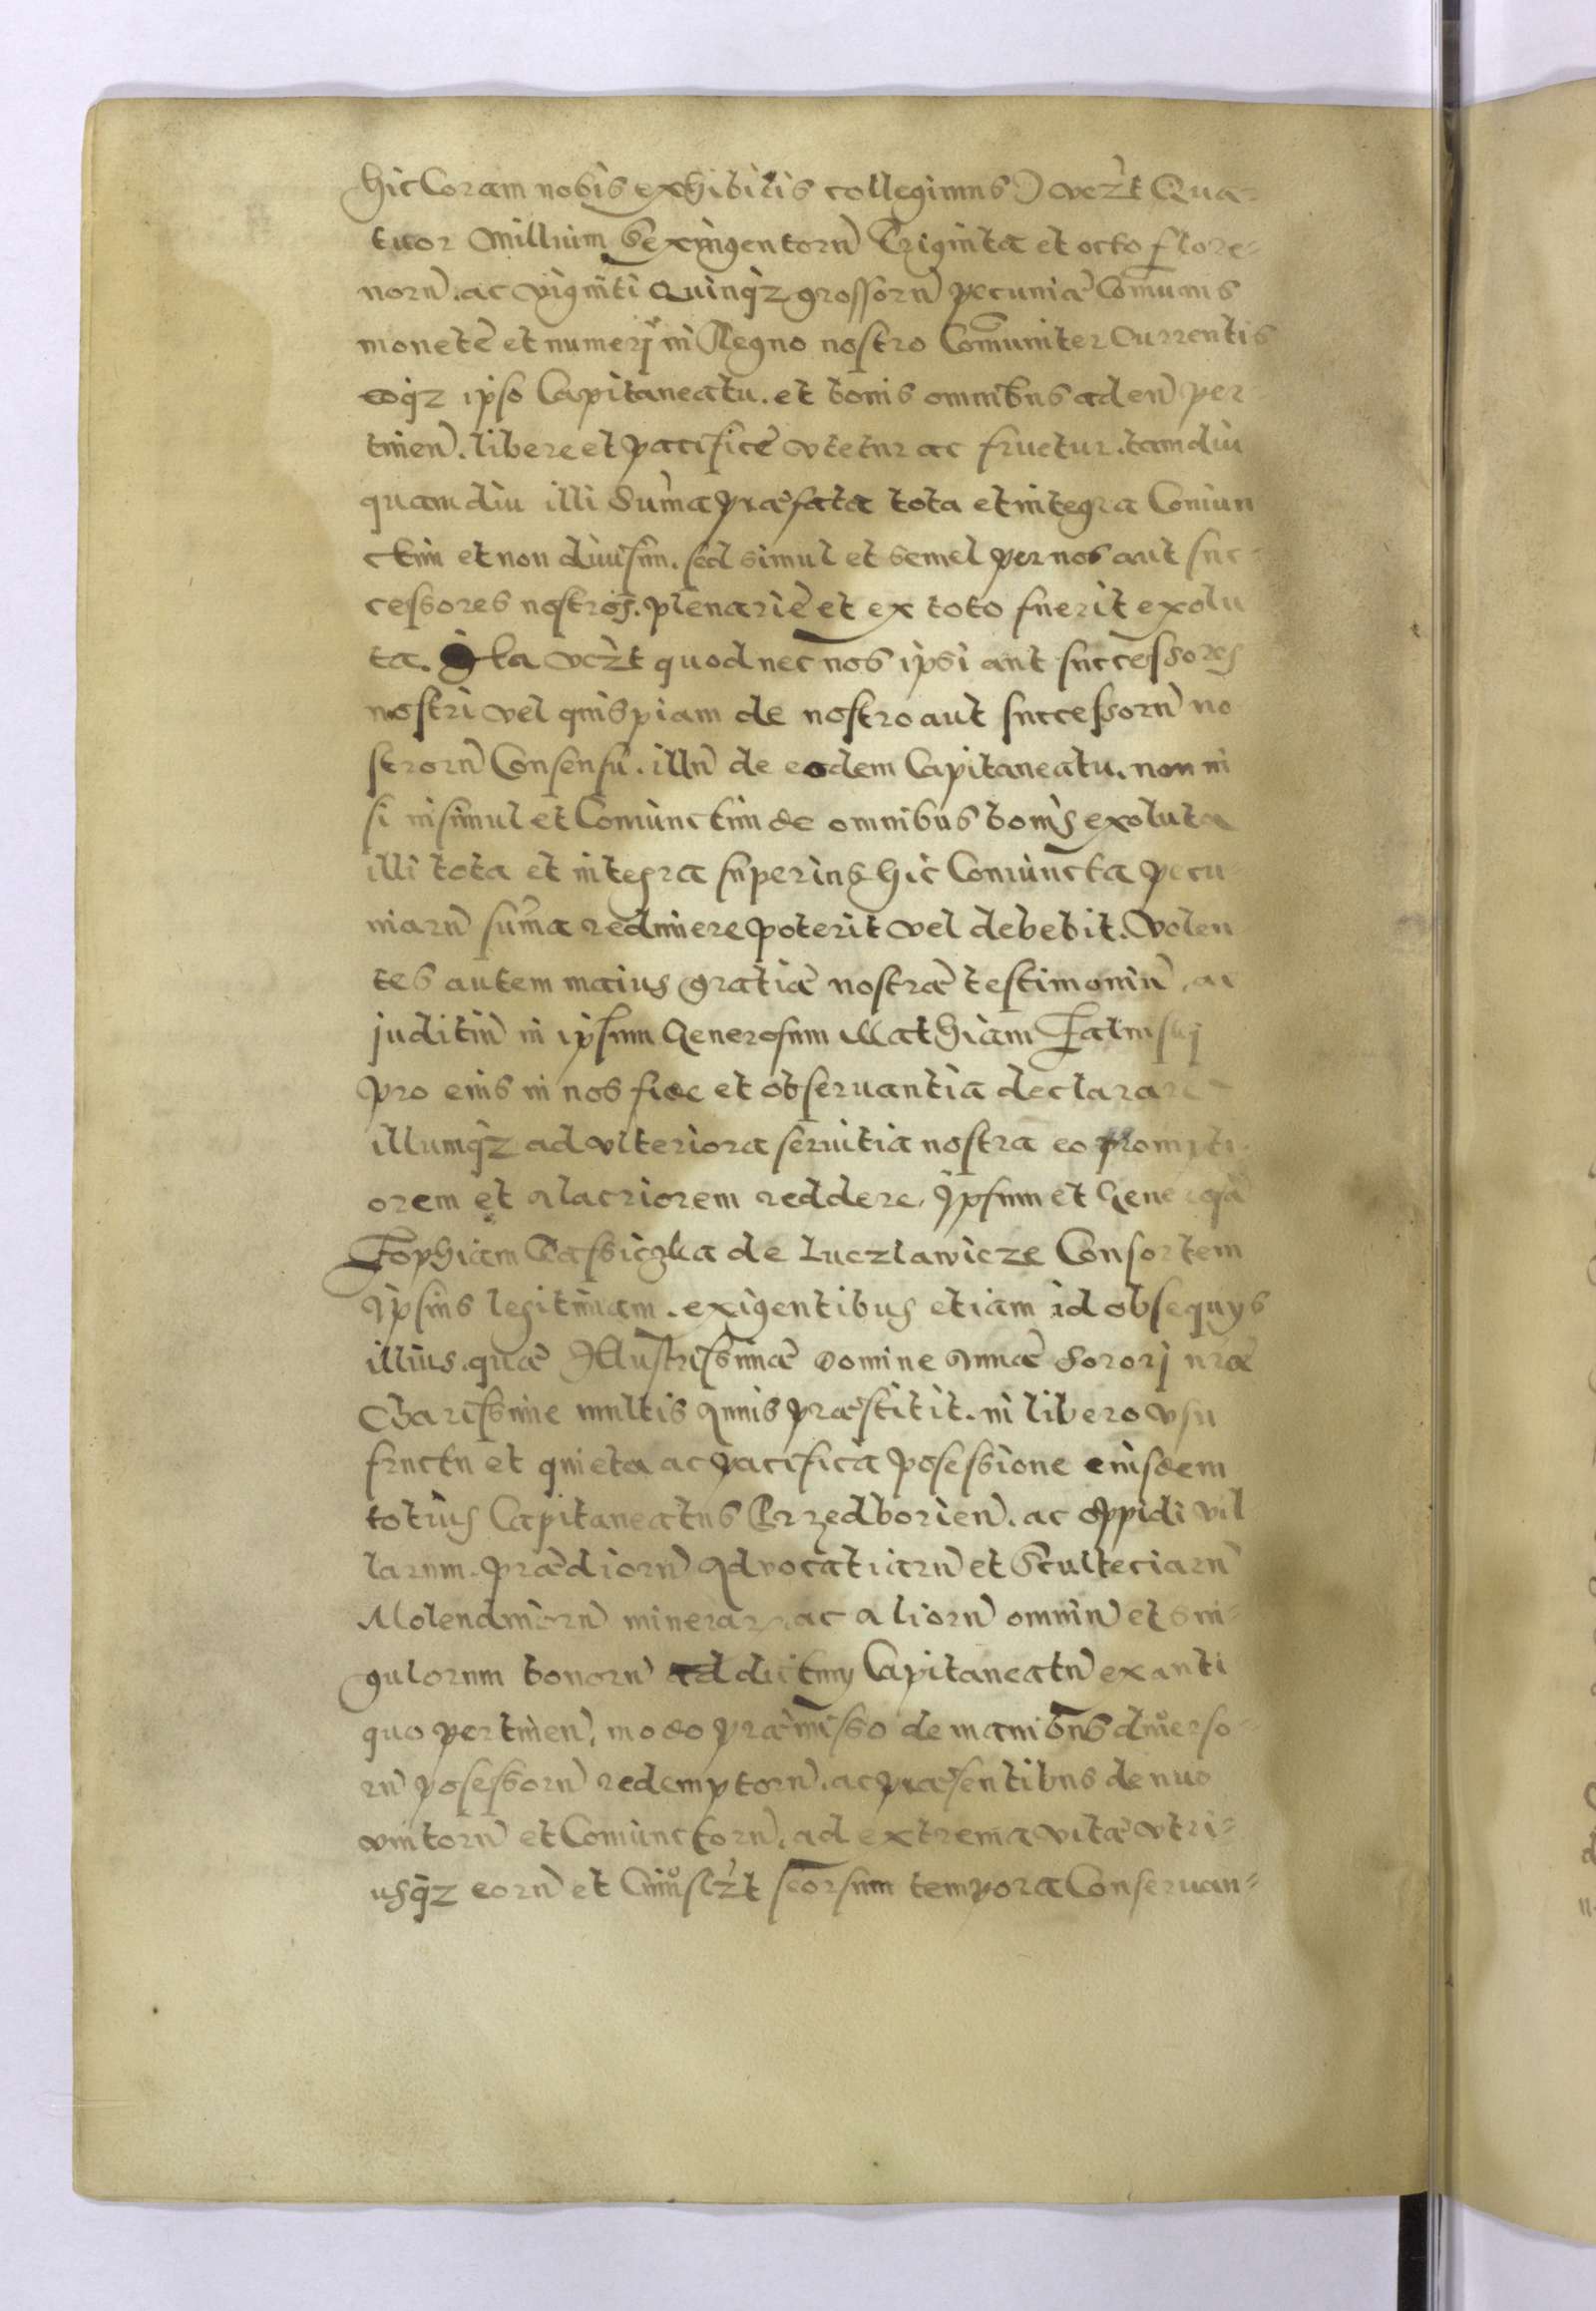 hic Coram nobis exhibitis collegimus) vczt Qua-
tuor Millium Sexingentorũ Triginta et octo flore-
norũ. ac viginti Quinqz grossorũ pecuniæ Cõmunis
monete et numerj in Regno nostro Cõmuniter Currentis
eoqz ipso Capitaneatu. et bonis omnibus ad eũ per
tinen. libere et pacifice vtetur ac fruetur. tamdiu
quamdiu illi Sum̃a præfata tota et integra Coniun
ctim et non diuisim. sed simul et semel per nos aut suc-
cessores nostros. plenarie et ex toto fuerit exolu
ta. Ita vczt quod nec nos ipsi aut successores
nostri vel quispiam de nostro aut successorũ no
strorũ Consensu. illũ de eodem Capitaneatu. non ni
si insimul et Coniunctim de omnibus bonis exoluta
illi tota et integra superius hic Coniuncta pecu
niarũ sum̃a redimere poterit vel debebit. Volen
tes autem maius gratiæ nostræ testimoniũ, ac
juditiũ in ipsum Generosum Mathiam
pro eius in nos fide et obseruantia declarare
illumqz ad vlteriora seruitia nostra eo prompti
orem et alacriorem reddere, Ipsum et Generosã
Zophiam de Luczlawicze Consortem
Ipsius legitimam. exigentibus etiam id obsequys
illius. quæ Illustrissimæ Domine Annæ Sororj nræ
Charissime multis Annis præstitit. in libero vsu
fructu et quieta ac pacifica posessione eiusdem
totius Capitaneatus Przedborien. ac oppidi vil
larum. prædiorũ Advocatiarũ et Scultetiarũ
Molendinorũ minerar. ac aliorũ omniũ et sin-
gulorum bonorũ ad dictum Capitaneatũ ex anti
quo pertinen, modo præmisso de manibus diuerso-
rũ posessorũ redemptorũ. ac præsentibus denuo
vnitorũ et Coniunctorũ, ad extrema vitæ vtri-
usqz eorũ et Cuiuslizt seorsum tempora Conseruan-